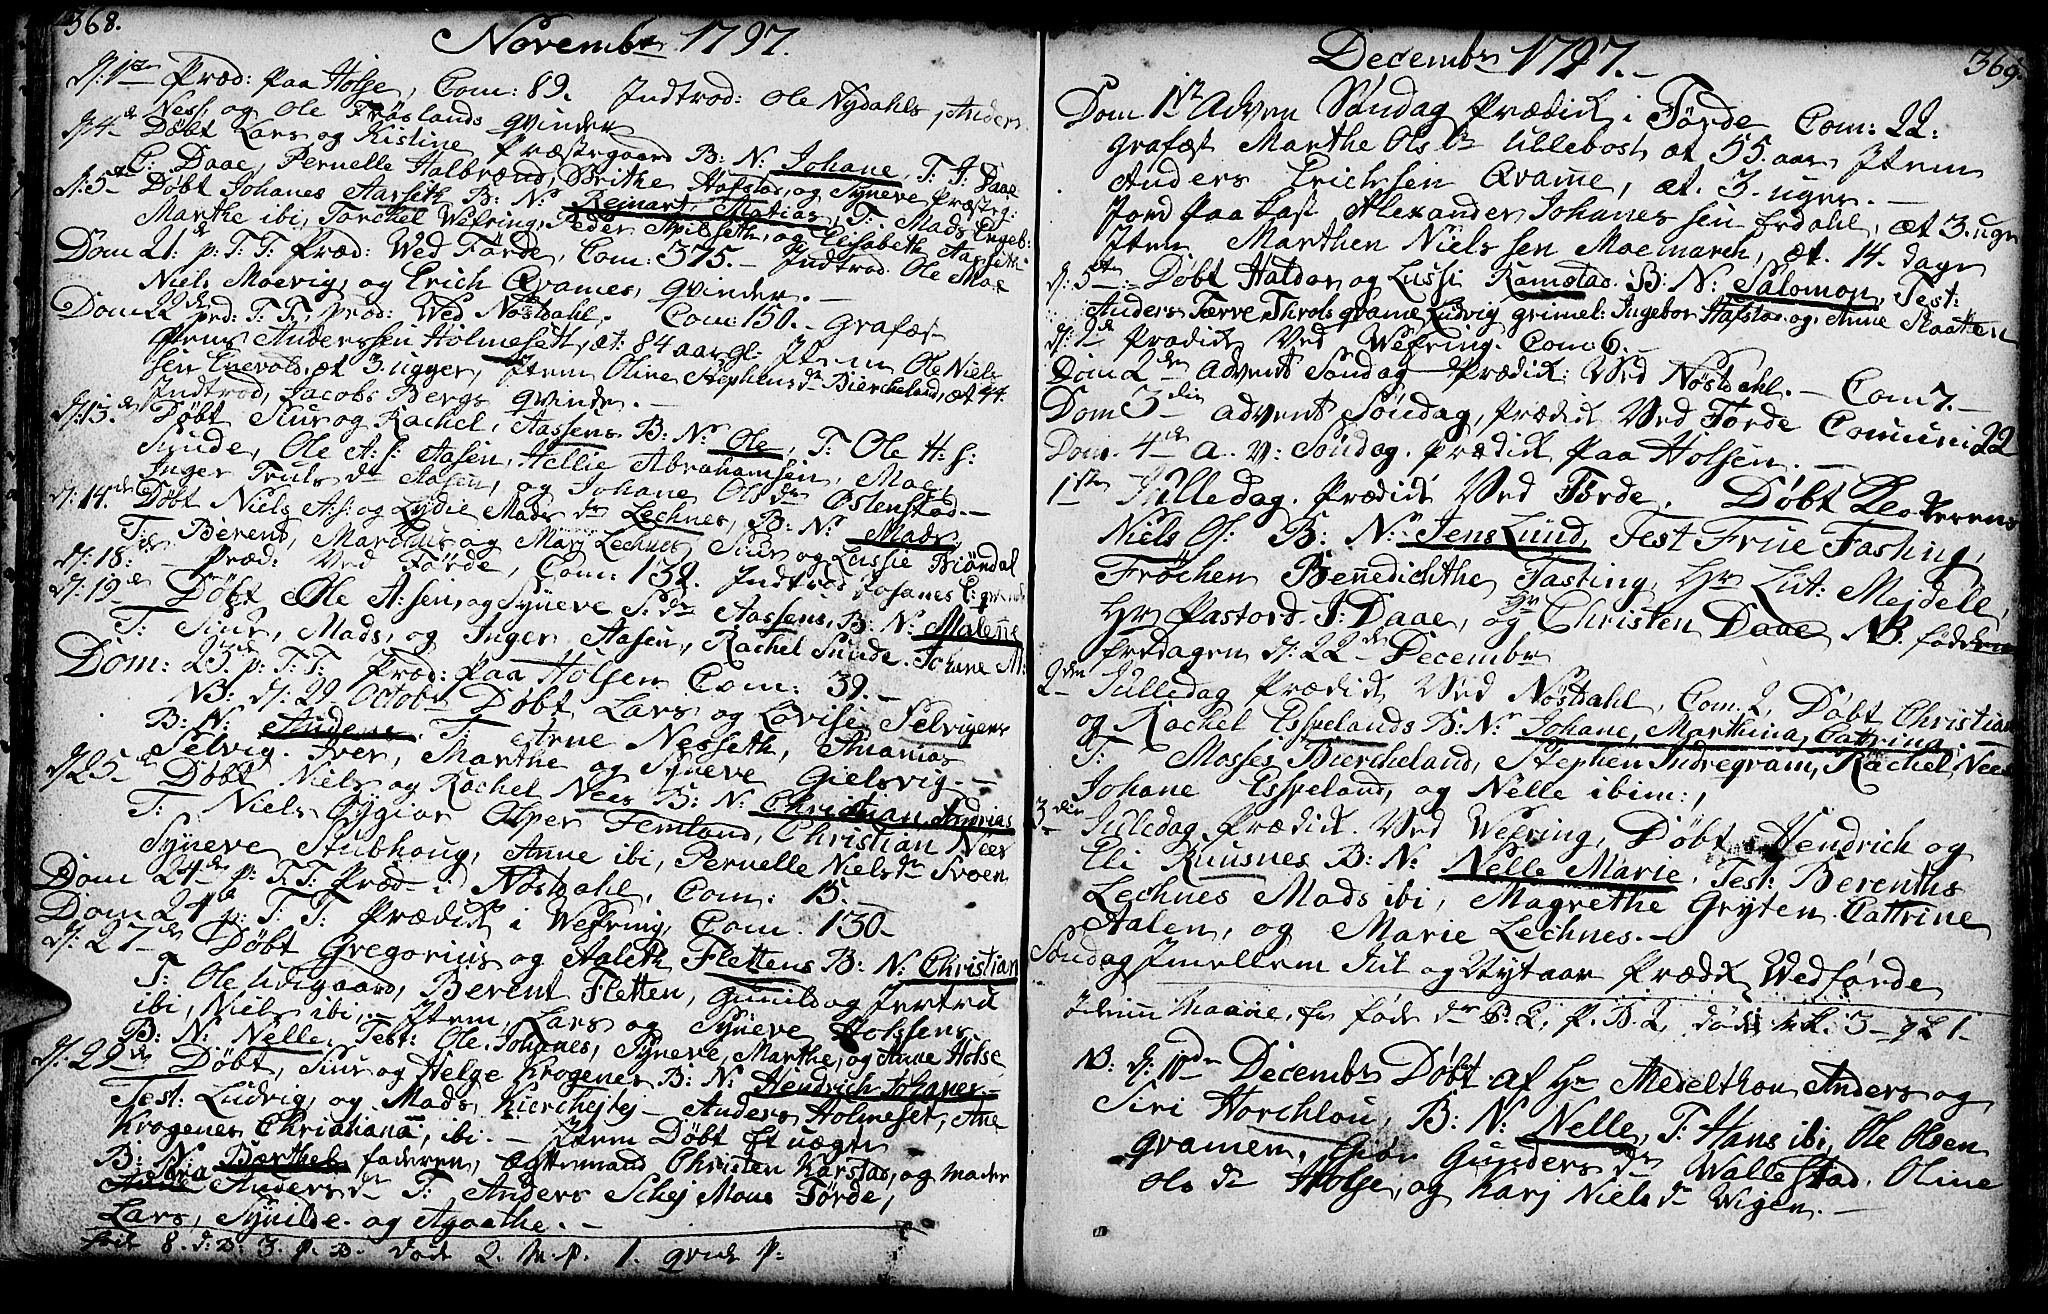 368.
Novembr 1797.
D: 1ste Præd: paa Holse, Com: 89. Indtrod: Ole Nydahls, Anders
Ness, og Ole Frøslands qvinder
D: 4de Døbt Lars og Kistine Præstegaard B: N: Johane, T: H: Daae
C: Daae, Pernelle Halbrænd, Brithe Hafstad, og Syneve Præsteg:
D: 5te Døbt Johanes Aarseth B: N: Reinart Matias, T: Mads Engeb:
Marthe ibi, Torchel Wefring, Peder Apilseth, og Elisabeth Aarseth
Dom 21de p: T: T: Præd: Wed Førde, Com: 375 - Indtrod Ole Moe
Niels Moevig, og Erich Qvames, qvinder. -
Dom 22de p: T: T: Præd: Wed Nøstdahl. Com: 150. - Grafæst
Jens Anderssen Holmeseth, æt: 84 aar gl: Item Ole Niels
sen Enevold, æt 3. ugger, Item Oline Stephens dr Biercheland, æt 44
Indtrod, Jacobs Bergs qvinde. -
D: 13. de Døbt Siur og Rachel Aassens B: Nr Ole, T: Ole H: s:
Sunde, Ole A: s: Aasen, Hellie Abrahamsen, Moe,
Inger Truls dr Aasen, og Johane Ols dr Østenstad. -
D: 14. de Døbt Niels A: s: og Lydie Mads dr Lechnes, B: Nr Mads,
T: Berent, Marthus og Marj Lechnes, Siur og Lussie Biøndal
D: 18: de Præd: Wed Førde, Com: 139. Indtrod Johanes E: qvinde
D: 19 de Døbt Ole A: sen, og Syneve S: dr Aassens, B: N: Malene
T: Siur, Mads, og Inger Aasen, Rachel Sunde. Johane M:
Dom: 23de p: T: T: Præd: paa Holsen Com: 39. -
NB: D: 29 Octobr Døbt Lars og Lovise Selvigens
B: N: Anders. T: Arne Nesseth, Ananias
Selvig. Iver, Marthe og Syneve Gielsvig. -
D: 25 de Døbt Niels og Rachel Nees B: N: Christian Andrias
T: Niels Sygior Olper Femland, Christian Nees
Syneve Stubhoug, Anne ibi, Pernelle Niels dr Svoen
Dom 24de p: T: T: Præd - i Nøstdahl, Com: 15. -
Dom 24de p: T: T: Prædik i Wefring, Com. 130 -
D: 27 de Døbt Gregorius og Aaleth Flettens B: N: Christian
T: Ole Udigaard, Berent Fletten, Gunild og Jertru
ibi, Niels ibi, - Item, Lars og Syneve Holssens
B: N: Nelle. Test: Ole. Johanes, Syneve, Marthe, og Anne Holse
D: 29 de Døbt, Siur og Helge Krogenes B: N: Hendrich Johanes -
Test: Ludvig, og Mads, Kierchejtej - Anders Holmeset, Ane
Krogenes Christiana, ibi. - Item Døbt Et uægte
B: N: Barthel faderen, ægtemand Christen Karstad, og moder
Siria Anders dr T: Anders Schej Mons Førde,
Lars, Synilde. og Agaathe. -
fød 8. d: B: 3. p. B. Døde 2. M. p. 1. qvid p:
369.
Decembr 1797. -
Dom 1ste Adven Søndag Prædik i Førde Com: 22:
Grafæst Marthe Ols dr Ullebost, æt 55. aar, Item
Anders Erichsen Qvame, æt. 3. uger. -
Jord paa Kast Alexander Johanessen Erdahl, æt 3. uger
Item Marthen Nielssen Moemarch, æt. 14. dage
D: 5te - Døbt Haldor og Lussi Ramstad. B: N: Salomon, Test:
Anders Færve, Throls Qvame, Ludvig Grimel: Ingebor Hafstad og Anne Slaatten
D: 9de Prædik Ved Wefring. Com: 6. -
Dom 2den Advent Søndag Prædik: Ved Nøstdahl. - Com 7. -
Dom 3die Advent Søndag, Prædik Ved Førde Comuni: 22
Dom. 4de A. V: Søndag. Prædik Paa Holsen. -
1ste Julledag. Prædik Ved Førde. Døbt Klocherens
Niels Of: B: Nr: Jens Lund, Test Frue Fasting,
Frøchen Benedichthe Fasting, Hr Lut: Mejdell,
Hr Pastord. J: Daae, og Hr Christen Daae NB. fødd
fredagen D: 22de Decembr
2den Julledag, Prædik Ved Nøstdahl, Com. 2, Døbt Christian
og Rachel Espelands B: Nr Johane, Marthina, Cattrina.
T: Mosses Biercheland, Stephen Indregram, Rachel Nees
Johane Espeland, og Nelle ibim: ,
3die Julledag Prædik. Ved Wefring, Døbt Hendrich og
Eli Kuusnes B: Nr Nelle Marie. Test: Berenthus
Lechnes Mads ibi, Magrethe Gryten Cattrine
Aalen, og Marie Lechnes. -
Søndag Imellem Jul og Nytaar Prædik Wed førde
I denne Maane, er føde dr B. 2, P. B. 2, døde M. K. 3 - q K 1.
NB. D: 10de Decembr Døbt af Hr Medelthon Anders og
Siri Horchlou, B: N: Nelle, T: Hans ibi, Ole Olsen
Qvamen, Giør Gunders dr Wallestad. Oline
Ols dr Holse, og Karj Niels dr Wigen. -